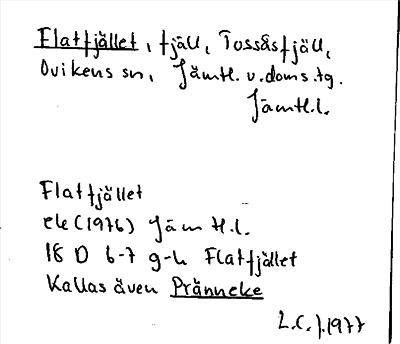 Flatfjället, fjäll, Tossåsfjäll,
Ovikens sn, Jämtl. v. doms. tg.
Jämtl. l.
Flatfjället
ek (1976) Jämtl. l.
18 D 6-7 g-h Flatfjället
Kallas även Pränneke
L.C.J. 1977